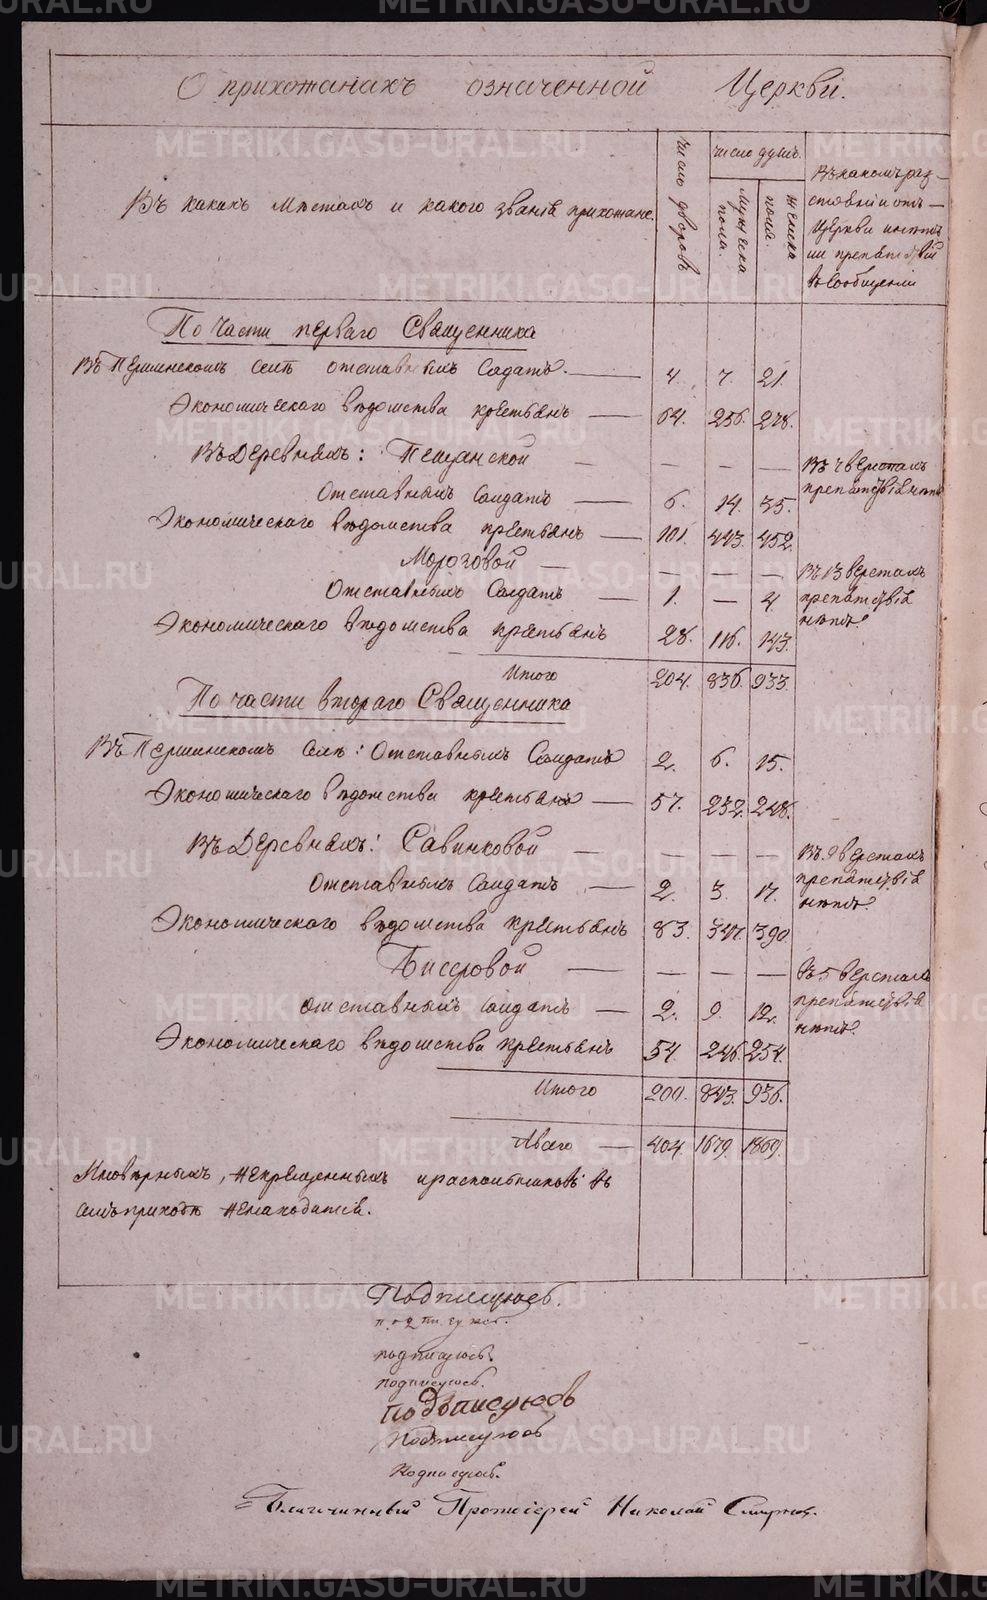 О прихожанахъ означенной Церкви.
Въ какихъ Мѣстахъ и какого званія прихожане.
число дворовъ
число душъ.
мужеска пола.
женска пола.
Въ какомъ раз-
стояніи отъ
Церкви и нѣтъ
ли препятствій
въ сообщеніи
По Части перваго Священника
Въ Першинскомъ селѣ отставныхъ Салдатъ. 4. 7. 21.
Экономическаго вѣдомства крестьянъ 64. 256. 278.
Въ Деревняхъ: Пещанской — — — —
Въ 7 верстахъ
препятствія нѣтъ
Отставныхъ Салдатъ 6. 14. 35.
Экономическаго вѣдомства крестьянъ 101. 443. 452.
Мороговой — — — —
Въ 13 верстахъ
препятствія
нѣтъ.
Отставныхъ Салдатъ 1. — 4
Экономическаго вѣдомства крестьянъ 28. 116. 143.
Итого 204. 836. 933.
По части втораго Священника
Въ Першинскомъ селѣ: Отставныхъ Салдатъ 2. 6. 15.
Экономическаго вѣдомства крестьянъ 57. 232. 248.
Въ Деревняхъ: Савинковой — — — —
Въ 9 верстахъ
препятствія
нѣтъ.
Отставныхъ Салдатъ 2. 3. 17.
Экономическаго вѣдомства крестьянъ 83. 347. 390.
Бисеровой — — — —
Въ 5 верстахъ
препятствія
нѣтъ.
Отставныхъ Салдатъ 2. 9. 12.
Экономическаго вѣдомства крестьянъ 54. 246. 254.
Итого 200. 843. 936.
Авсего 404. 1679. 1869.
Иновѣрныхъ, некрещенныхъ и раскольниковъ въ
семъ приходѣ ненаходится.
Подписуюсь.
подписуюсь.
подписуюсь.
подписуюсь.
подъписуюсь
Подписуюсь
Подписуюсь.
Благочинный Протоіерей Николай Смирнов.
METRIKI.GASO-URAL.RU